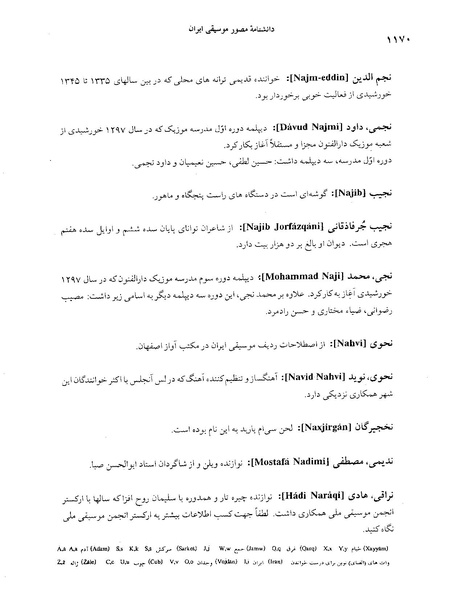 دانشنامهٔ مصور موسیقی ایران
۱۱۷۰
نجم الدین [Najm-eddin]: خواننده قدیمی ترانه های محلی که در بین سالهای ۱۳۳۵ تا ۱۳۴۵
خورشیدی از فعالیت خوبی برخوردار بود.
نجمی، داود [Dávud Najmi]: دیپلمه دوره اوّل مدرسه موزیک که در سال ۱۲۹۷ خورشیدی از
شعبه موزیک دارالفنون مجزا و مستقلاً آغاز بکارکرد.
دوره اوّل مدرسه، سه دیپلمه داشت: حسین لطفی، حسین نعیمیان و داود نجمی.
نجیب [Najib]: گوشه‌ای است در دستگاه های راست پنجگاه و ماهور.
نجیب جُرفاذقانی [Najib Jorfázqáni]: از شاعران توانای پایان سده ششم و اوایل سده هفتم
هجری است. دیوان او بالغ بر دو هزار بیت دارد.
نجی، محمد [Mohammad Naji]: دیپلمه دوره سوم مدرسه موزیک دارالفنون که در سال ۱۲۹۷
خورشیدی آغاز به کار کرد. علاوه بر محمد نجی، این دوره سه دیپلمه دیگر به اسامی زیر داشت: مصیب
رضوانی، ضیاء مختاری و حسن رادمرد.
نحوی [Nahvi]: از اصطلاحات ردیف موسیقی ایران در مکتب آواز اصفهان.
نحوی، نوید [Navid Nahvi]: آهنگساز و تنظیم کننده آهنگ که در لس آنجلس با اکثر خوانندگان این
شهر همکاری نزدیکی دارد.
نخجیرگان [Naxjirgán]: لحن سی‌ام باربد به این نام بوده است.
ندیمی، مصطفی [Mostafá Nadimi]: نوازنده ویلن و از شاگردان استاد ابوالحسن صبا.
نراقی، هادی [Hádi Naráqi]: نوازنده چیره تار و همدوره با سلیمان روح افزا که سالها با ارکستر
انجمن موسیقی ملی همکاری داشت. لطفاً جهت کسب اطلاعات بیشتر به ارکستر انجمن موسیقی ملی
نگاه کنید.
A,a Á,á (Adam) آدم S,s K,k Š,š (Sarkeš) سرکش J,j W,w (Jamw) جمع Q,q (Qarq) غرق X,x Y,y (Xayyám) خیام
Z,z (Žále) ژاله C,c U,u (Cub) چوب V,v O,o (Vojdán) وجدان I,i (Irán) ایران وات های (الفبای) نوین برای درست خواندن